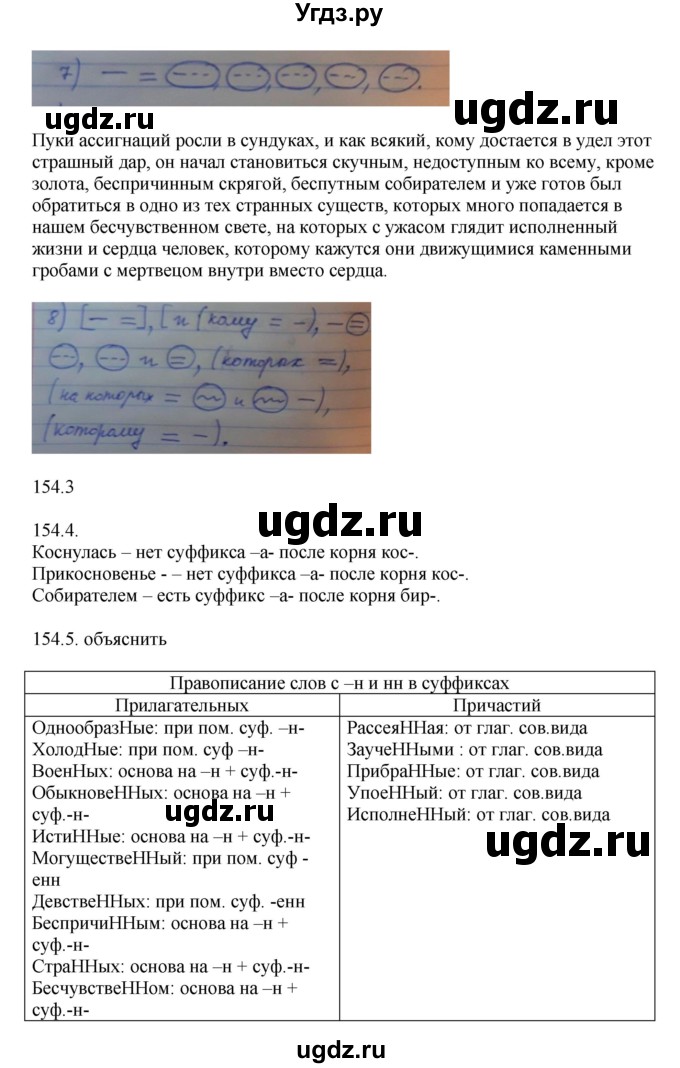 Угдз.ру
7) — = ---, ---, ---, ---, ---.
ugdz.ru
ugdz.ru
Пуки ассигнаций росли в сундуках, и как всякий, кому достается в удел этот
страшный дар, он начал становиться скучным, недоступным ко всему, кроме
золота, беспричинным скрягой, беспутным собирателем и уже готов был
обратиться в одно из тех странных существ, которых много попадается в
нашем бесчувственном свете, на которых с ужасом глядит исполненный
жизни и сердца человек, которому кажутся они движущимися каменными
гробами с мертвецом внутри вместо сердца.
8) [— =], [и (кому = -), — =
---, --- и =, (которых =),
(на которых = ~~ и ~~ -),
(которому = -).
154.3
154.4.
ugdz.ru
Коснулась – нет суффикса –а- после корня кос-.
Прикосновенье - – нет суффикса –а- после корня кос-.
Собирателем – есть суффикс –а- после корня бир-.
154.5. объяснить
Правописание слов с –н и нн в суффиксах
Прилагательных
ОднообразНые: при пом. суф. –н-
ХолодНые: при пом. суф –н-
ВоенНых: основа на –н + суф.-н-
ОбыкновеННых: основа на –н +
суф.-н-
ИстиННые: основа на –н + суф.-н-
МогуществеННый: при пом. суф -
енн
ДевствеННых: при пом. суф. -енн
БеспричиННым: основа на –н +
суф.-н-
СтраННых: основа на –н + суф.-н-
БесчувствеННом: основа на –н +
суф.-н-
Причастий
РассеяННая: от глаг. сов.вида
ЗаучеННыми : от глаг. сов.вида
ПрибраННые: от глаг. сов.вида
УпоеННый: от глаг. сов.вида
ИсполнеННый: от глаг. сов.вида
ugdz.ru
ugdz.ru
ugdz.ru